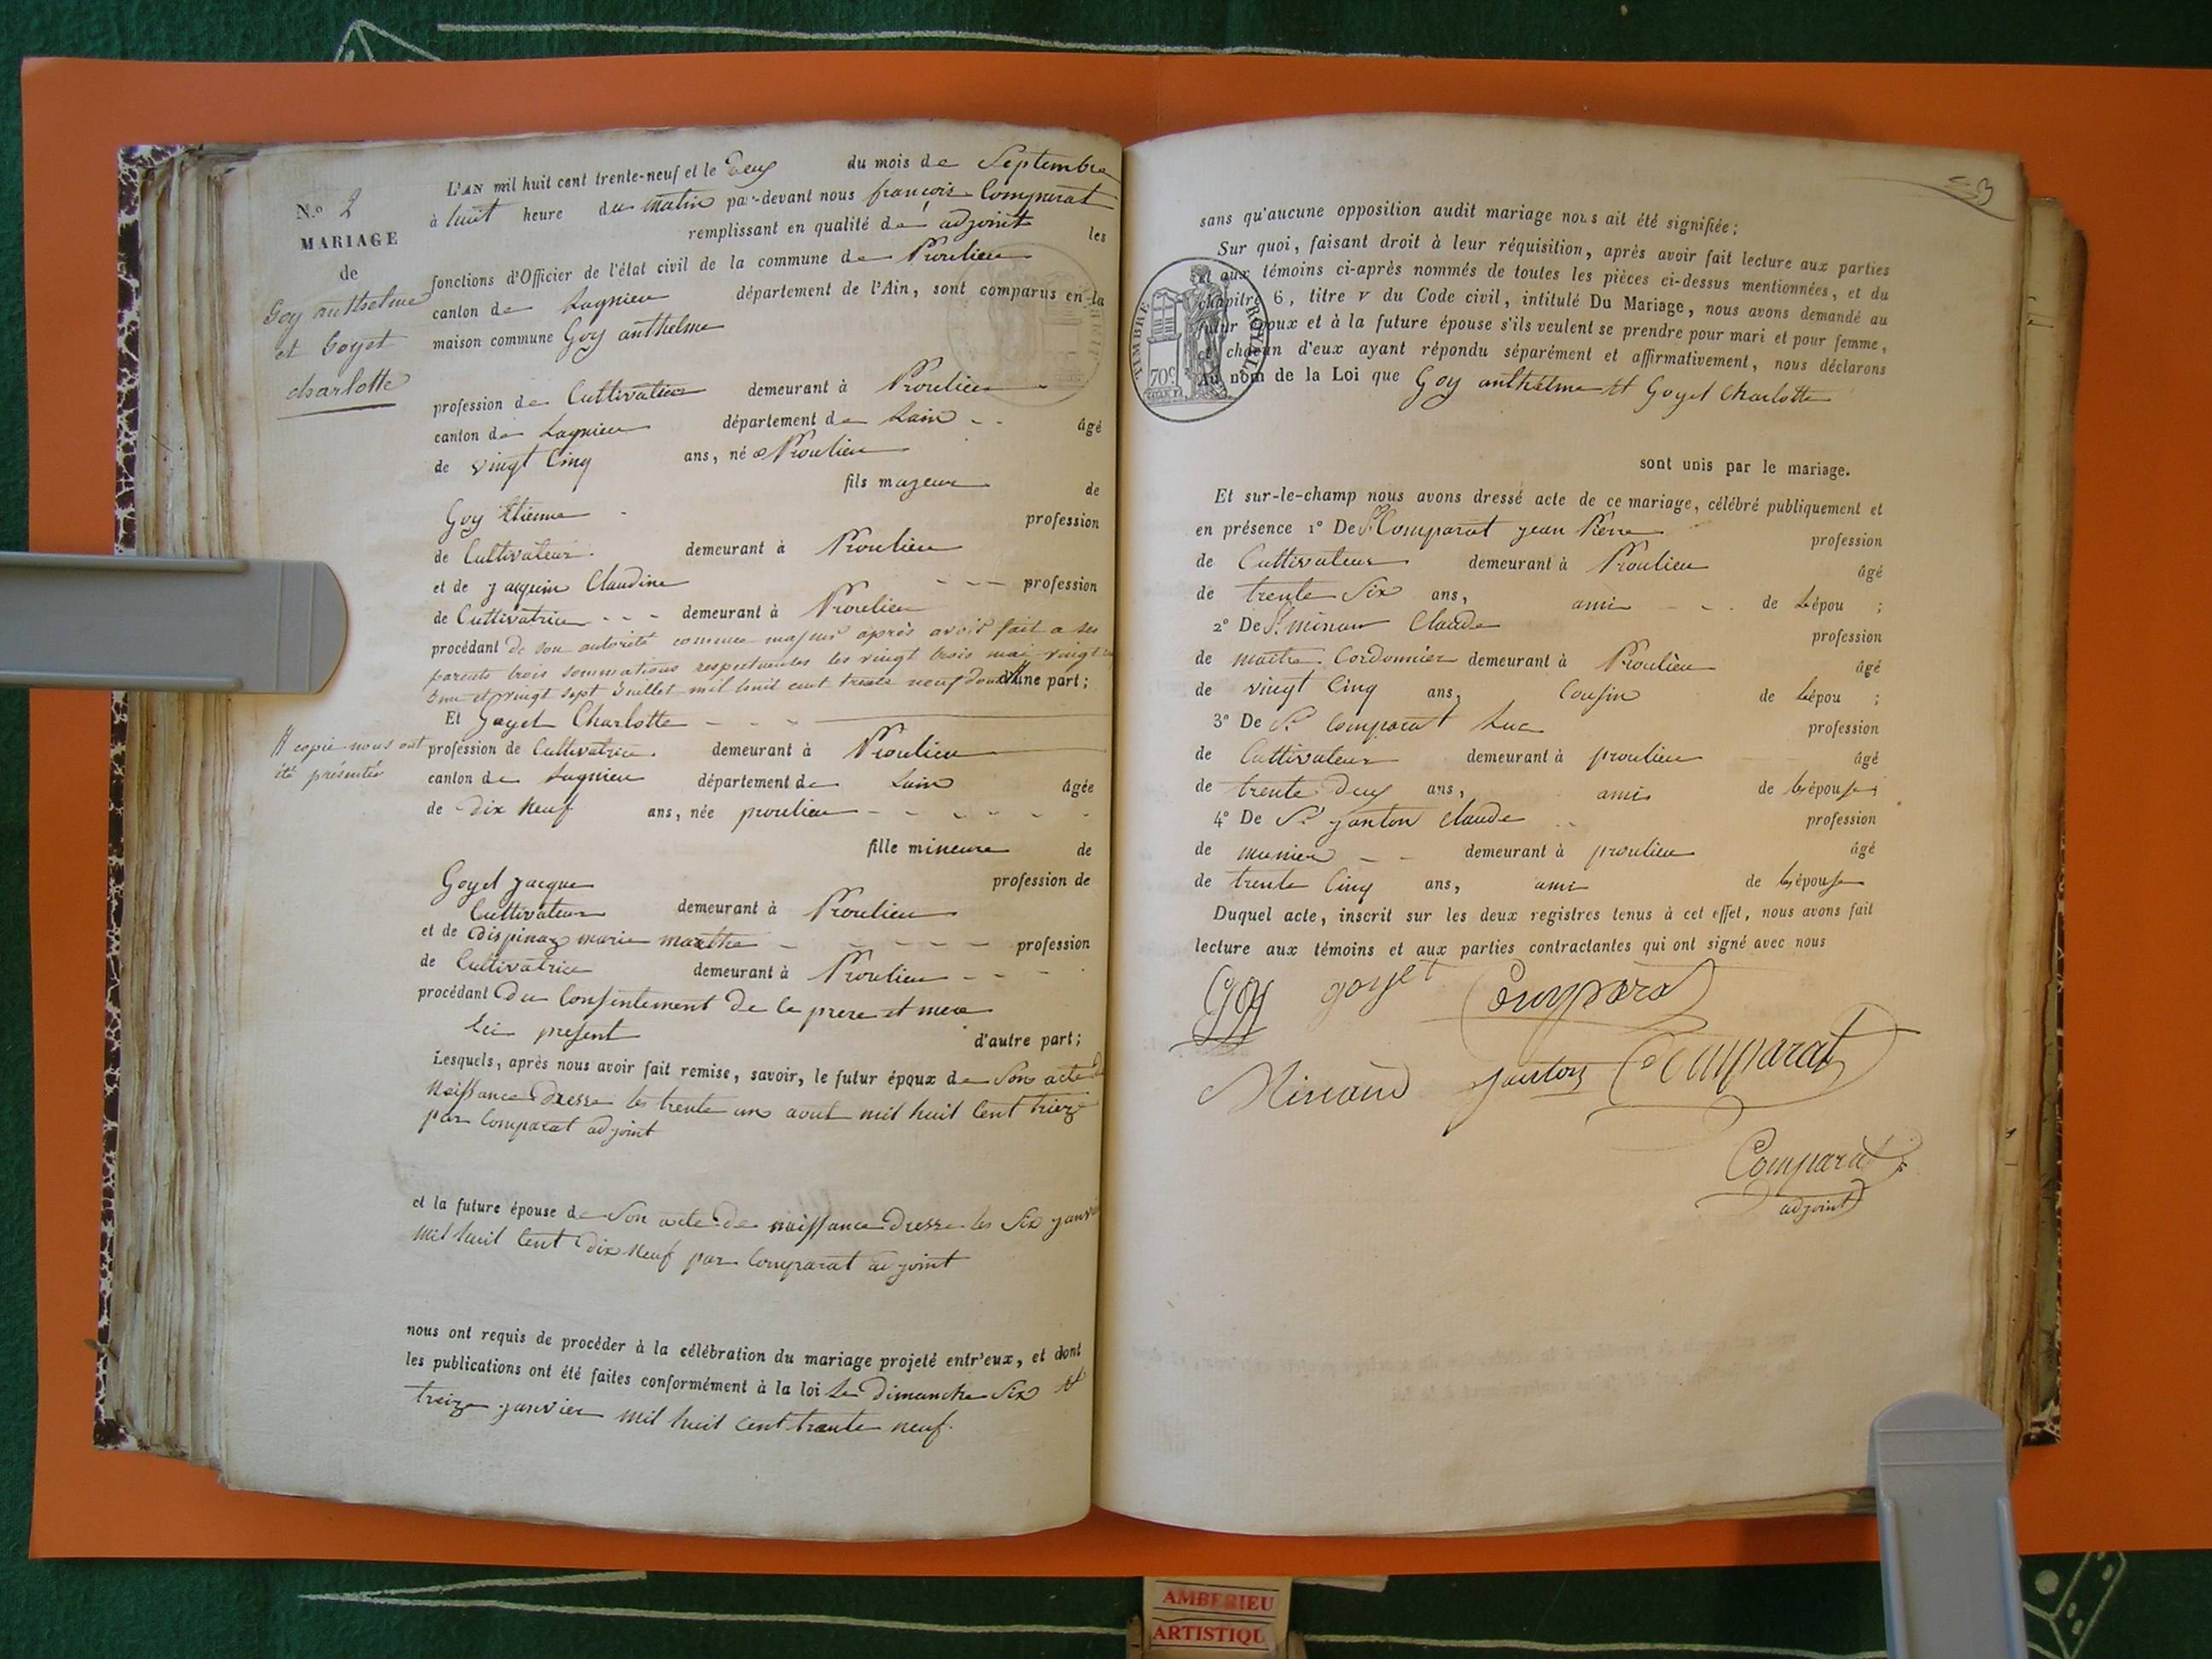 N.o 2
MARIAGE
de
Goy anthelme
et Goyet
charlotte
L'AN mil huit cent trente-neuf et le Deux du mois de Septembre
à huit heure du matin par-devant nous françois Comparat
remplissant en qualité de adjoint les
fonctions d'Officier de l'état civil de la commune de Proulieu
canton de Lagnieu département de l'Ain, sont comparus en la
maison commune Goy anthelme
profession de Cultivateur demeurant à Proulieu
canton de Lagnieu département de Lain âgé
de vingt Cinq ans, né a Proulieu
fils majeur de
Goy Etienne profession
de Cultivateur demeurant à Proulieu
et de jaquin Claudine profession
de Cultivatrice demeurant à Proulieu
procédant de son autorité comme majeur après avoir fait a ses
parents trois sommations respectueuses les vingt trois mai vingt
et vingt sept juillet mil huit cent trente neuf dont # d'une part;
Et Goyet Charlotte
# copie nous ont
été présentés
profession de Cultivatrice demeurant à Proulieu
canton de Lagnieu département de Lain âgée
de dix neuf ans, née proulieu
fille mineure de
Goyet jacque profession de
Cultivateur demeurant à Proulieu
et de Dispinaz marie marthe profession
de Cultivatrice demeurant à Proulieu
procédant Du Consentement de Ce prere et mere
Ici present d'autre part;
Lesquels, après nous avoir fait remise, savoir, le futur époux de Son acte de
Naissance Dresse les trente un aout mil huit Cent treize
par Comparat adjoint
et la future épouse de Son acte de naissance Dresse les Six janvier
mil huit Cent Dix Neuf par Comparat adjoint
nous ont requis de procéder à la célébration du mariage projeté entr'eux, et dont
les publications ont été faites conformément à la loi Le Dimanche Six et
treize janvier mil huit cent trente neuf.
53
sans qu'aucune opposition audit mariage nous ait été signifiée;
Sur quoi, faisant droit à leur réquisition, après avoir fait lecture aux parties
et aux témoins ci-après nommés de toutes les pièces ci-dessus mentionnées, et du
chapitre 6, titre v du Code civil, intitulé Du Mariage, nous avons demandé au
futur époux et à la future épouse s'ils veulent se prendre pour mari et pour femme,
et chacun d'eux ayant répondu séparément et affirmativement, nous déclarons
Au nom de la Loi que Goy anthelme et Goyet Charlotte
TIMBRE ROYAL
70c
sont unis par le mariage.
Et sur-le-champ nous avons dressé acte de ce mariage, célébré publiquement et
en présence 1° De Sr Comparat jean Pierre profession
de Cultivateur demeurant à Proulieu âgé
de trente Six ans, ami de Lépou ;
2° De Sr minau Claude profession
de maitre Cordonnier demeurant à Proulieu âgé
de vingt Cinq ans, Cousin de Lépou ;
3° De Sr Comparat Luc profession
de Cultivateur demeurant à proulieu âgé
de trente Deux ans, ami de Lépouse ;
4° De Sr janton claude profession
de munier demeurant à proulieu âgé
de trente Cinq ans, ami de Lépouse
Duquel acte, inscrit sur les deux registres tenus à cet effet, nous avons fait
lecture aux témoins et aux parties contractantes qui ont signé avec nous
Goy goyet Comparat
Minaud janton Comparat
Comparat
adjoint
AMBERIEU
ARTISTIQU